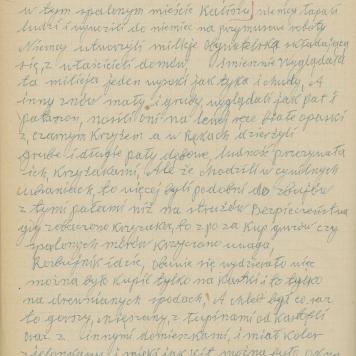 w tym spalonym mieście Kaliszu, niemcy łapali
ludzi i wywozili do niemiec na przymusowe roboty
Niemcy utworzyli milicje Obywatelską składającą
się, z właścicieli domów. Śmiesznie wyglądała
ta milicja jeden wysoki jak tyka i chudy, A
inny znów mały i gruby, wyglądali jak pat i
patason, nosili oni na lewej ręce białe opaski
z czarnym Krzyżem a w rękach dzierżyli
grube i długie pały dębowe, ludność przezywała
ich, Krzyżakami, Ale że chodzili w cywilnych
ubraniach, to więcej byli podobni do zbójów
z tymi pałami niż na stróżów Bezpieczeństwa
gdy zobaczono krzyżaka, to z po za kup gruzów czy
spalonych murów krzyczano uwaga,
Rozbójnik idzie,
można było kupić tylko na kartki i to tylko
na drewnianych spodach, A chleb był co raz
to gorszy, mieszany z łupinami od kartofli
oraz z innymi domieszkami, i miał kolor